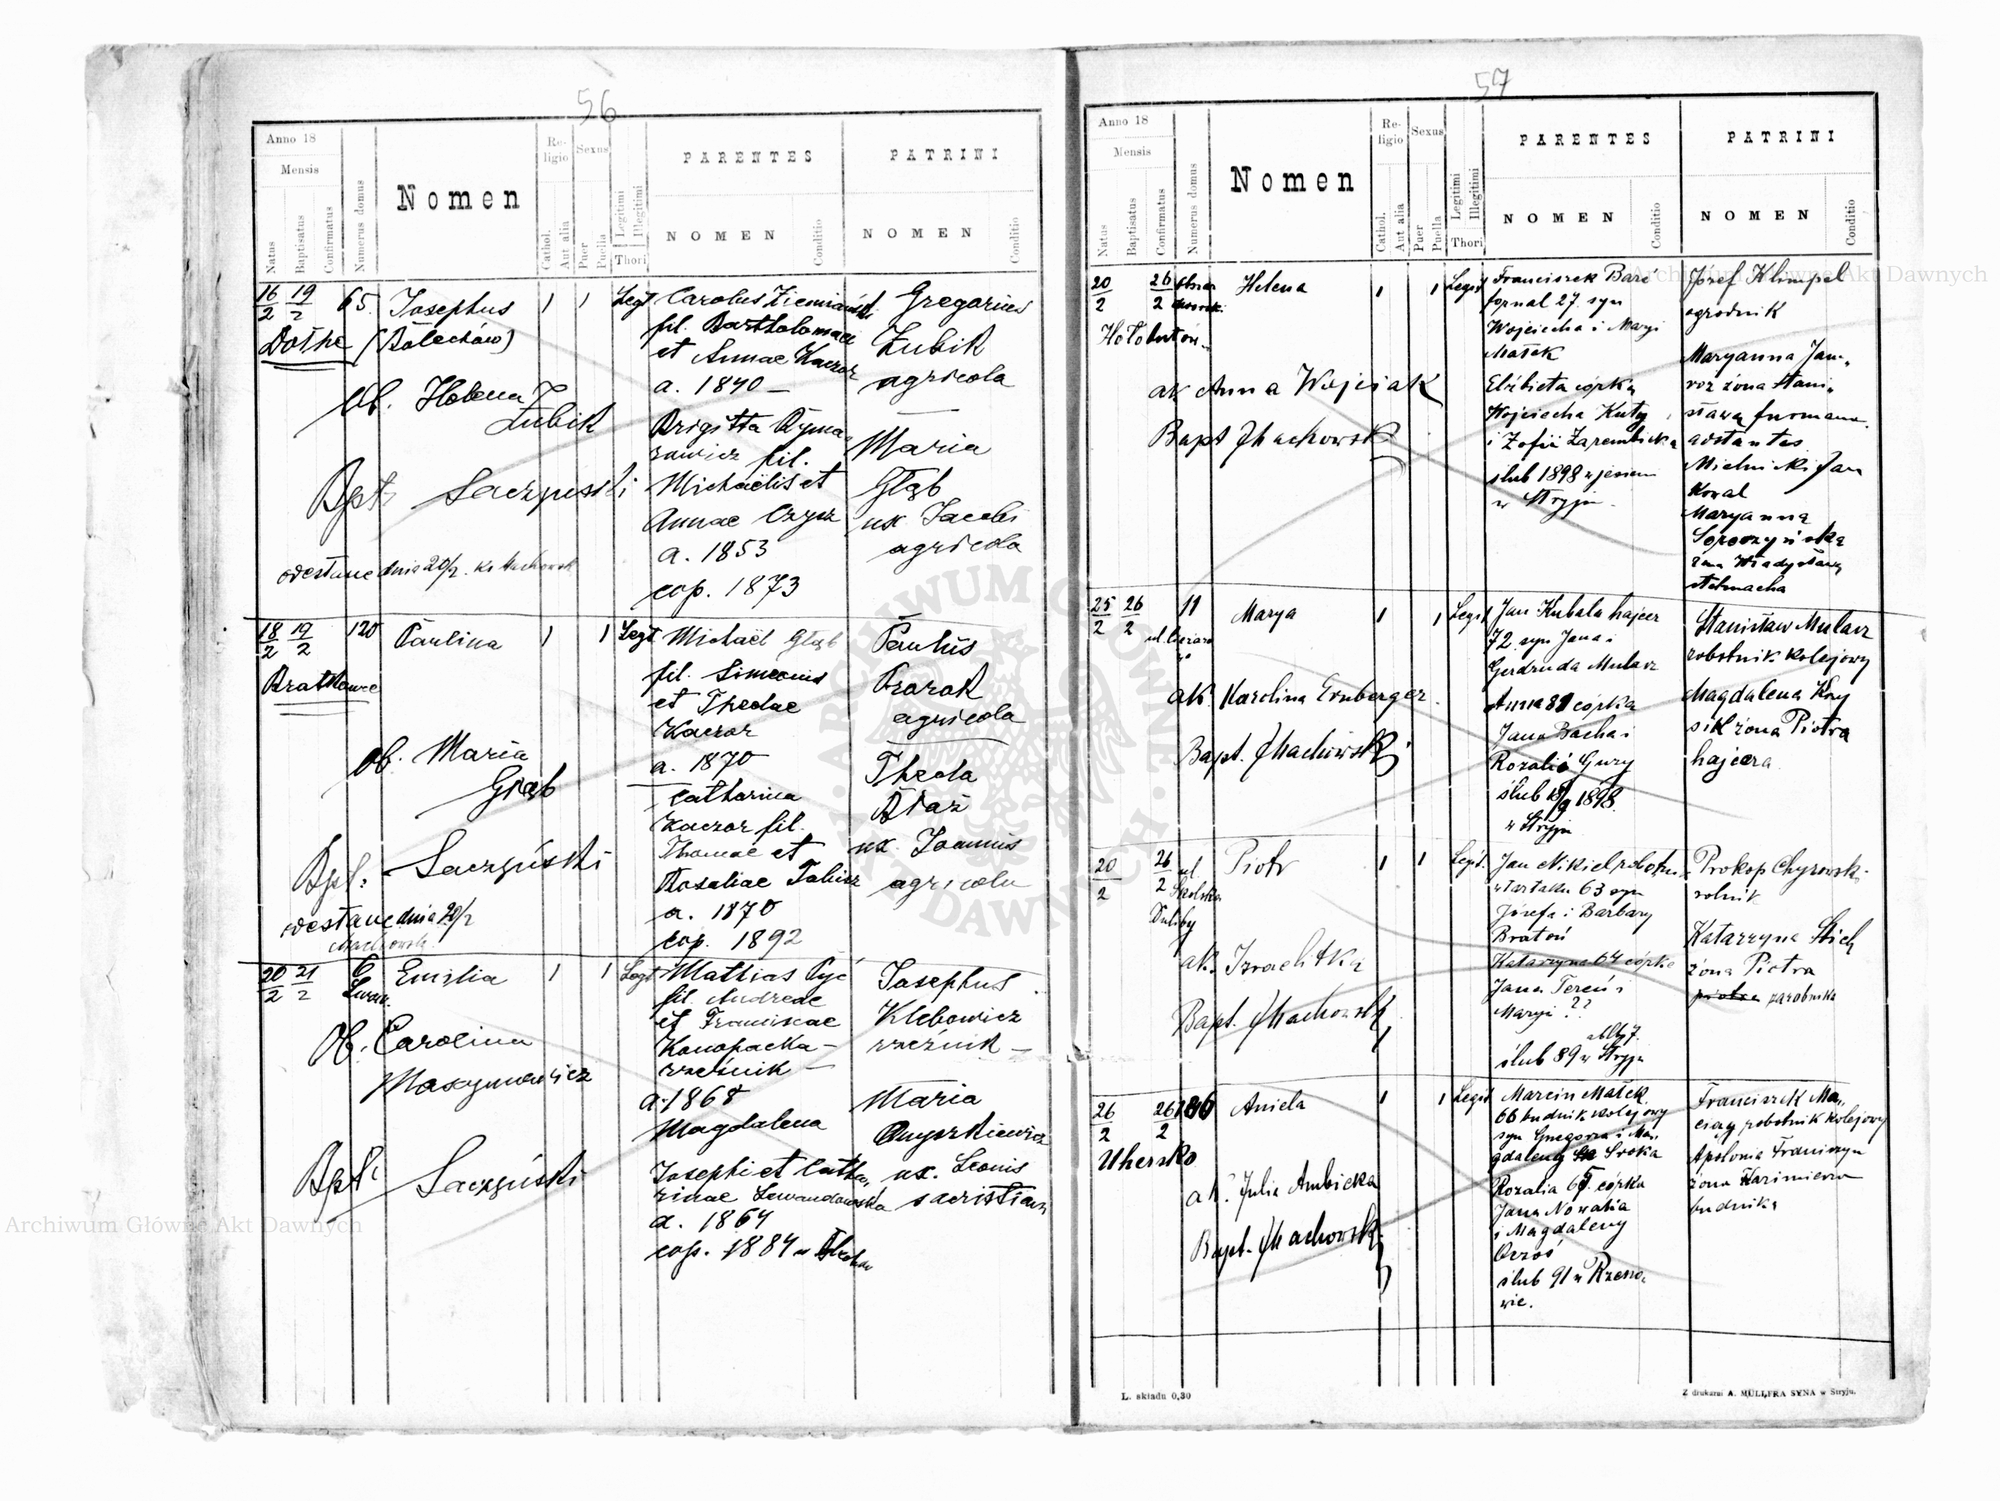 56
Anno 18
Mensis
Natus
Baptisatus
Confirmatus
Numerus domus
Nomen
Religio
Cathol.
Aut alia
Sexus
Puer
Puella
Legitimi
Illegitimi
Thori
PARENTES
NOMEN
Conditio
PATRINI
NOMEN
Conditio
16/2 19/2 65. Josephus 1 1 Legt
(Bolechów)
Ob. Helena
Zubik
Bpt.
Carolus
fil. Bartholomaei
et Annae Kaczor
a. 1840 —
Brigitta
fil.
Michaëlis et
Annae Czysz
a. 1853
cop. 1873
Gregorius
Zubik
agricola
Maria
Głąb
ux. Jacobi
agricola
dnia 20/2
18/2 19/2 120 Paulina 1 1 Legt
Bratkowce
Ob. Maria
Głąb
Bpt.
dnia 20/2
Michaël Głąb
fil. Simeonis
et Theclae
Kaczor
a. 1870
Catharina
Kaczor fil.
Thomae et
Rosaliae
a. 1870
cop. 1892
Paulus
agricola
Thecla
ux. Joannis
agricola
20/2 21/2 6 Emilia 1 1 Legt
Ob. Carolina
Maxymowicz
Bpt.
Mathias Pyć
fil. Andreae
et Franciscae
Konopacka —
rzeźnik —
a. 1868
Magdalena
Josephi et Catha-
rinae Lewandowska
a. 1864
cop. 1884 w
Josephus
Klebowicz
rzeźnik —
Maria
Onyszkiewicz
ux. Leonis
57
Anno 18
Mensis
Natus
Baptisatus
Confirmatus
Numerus domus
Nomen
Religio
Cathol.
Aut alia
Sexus
Puer
Puella
Legitimi
Illegitimi
Thori
PARENTES
NOMEN
Conditio
PATRINI
NOMEN
Conditio
20/2 26/2 Helena 1 1 Legit
ak Anna Wojciak
Bapt
Franciszek
fornal 27. syn
Wojciecha i Maryi
Małek
Elżbieta córka
Wojciecha Kuty
i Zofii Zarembicka
ślub 1898
w Stryju.
Józef Klimpel
ogrodnik
Maryanna Jaw-
roz żona Stani-
sława furmana.
adstantes
Mielnicki Jan
Kowal
Maryanna
żona Władysława
stelmacha
25/2 26/2 11 Marya 1 1 Legit
ak. Karolina Ernberger.
Bapt.
Jan Kubala hajcer
72. syn Jana i
Gerdruda Mularz
Anna córka
Jana Bacha i
Rozalii Gury
ślub 18/9 1898.
w Stryju
Stanisław Mularz
robotnik kolejowy
Magdalena
żona Piotra
hajcera
20/2 26/2 ul. Piotr 1 1 Legit.
Duliby
ak. Izraelitka
Bapt.
Jan Nikiel
w tartaku 63 syn
Józefa i Barbary
Bratoń
Katarzyna 64 córka
Jana Tereń i
Maryi ??
ślub 89 w Stryju
Prokop Chyrowski
rolnik
Katarzyna Stich
żona Piotra
zarobnika
26/2 26/2 Aniela 1 1 Legit
Uhersko
ak. Julia Ambicka
Bapt.
Marcin Małek
66 budnik kolejowy
syn Grzegorza i Ma-
gdaleny Sroka
Rozalia córka
Jana Nowalia
i Magdaleny
ślub 91 w Rzeszo-
wie.
Franciszek Ma-
robotnik kolejowy
Apolonia
żona Kazimierza
budnika
L. składu 0,30
Z drukarni A. MÜLLERA SYNA w Stryju.
Archiwum Główne Akt Dawnych
Archiwum Główne Akt Dawnych
ARCHIWUM GŁÓWNE AKT DAWNYCH